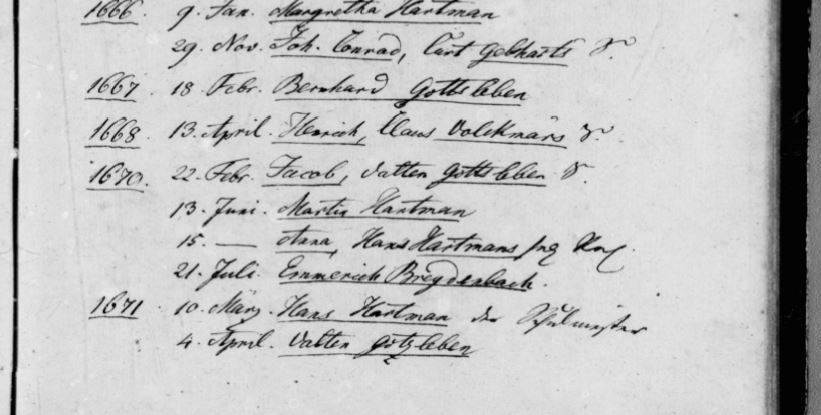 1666. 9. Jan. Margretha Hartman
29. Nov. Joh. Conrad, Curt Gebharts S.
1667. 18. Febr. Bernhard Gottsleben
1668. 13. April. Henrich, Claus Volckmars S.
1670. 22. Febr. Jacob, Valten Gottsleben S.
13. Juni. Martin Hartman
15. — Anna, Hans Hartmans
21. Juli. Emmerich Breydenbach.
1671 10. März. Hans Hartman der Schulmeister
4. April. Valten Gotzleben